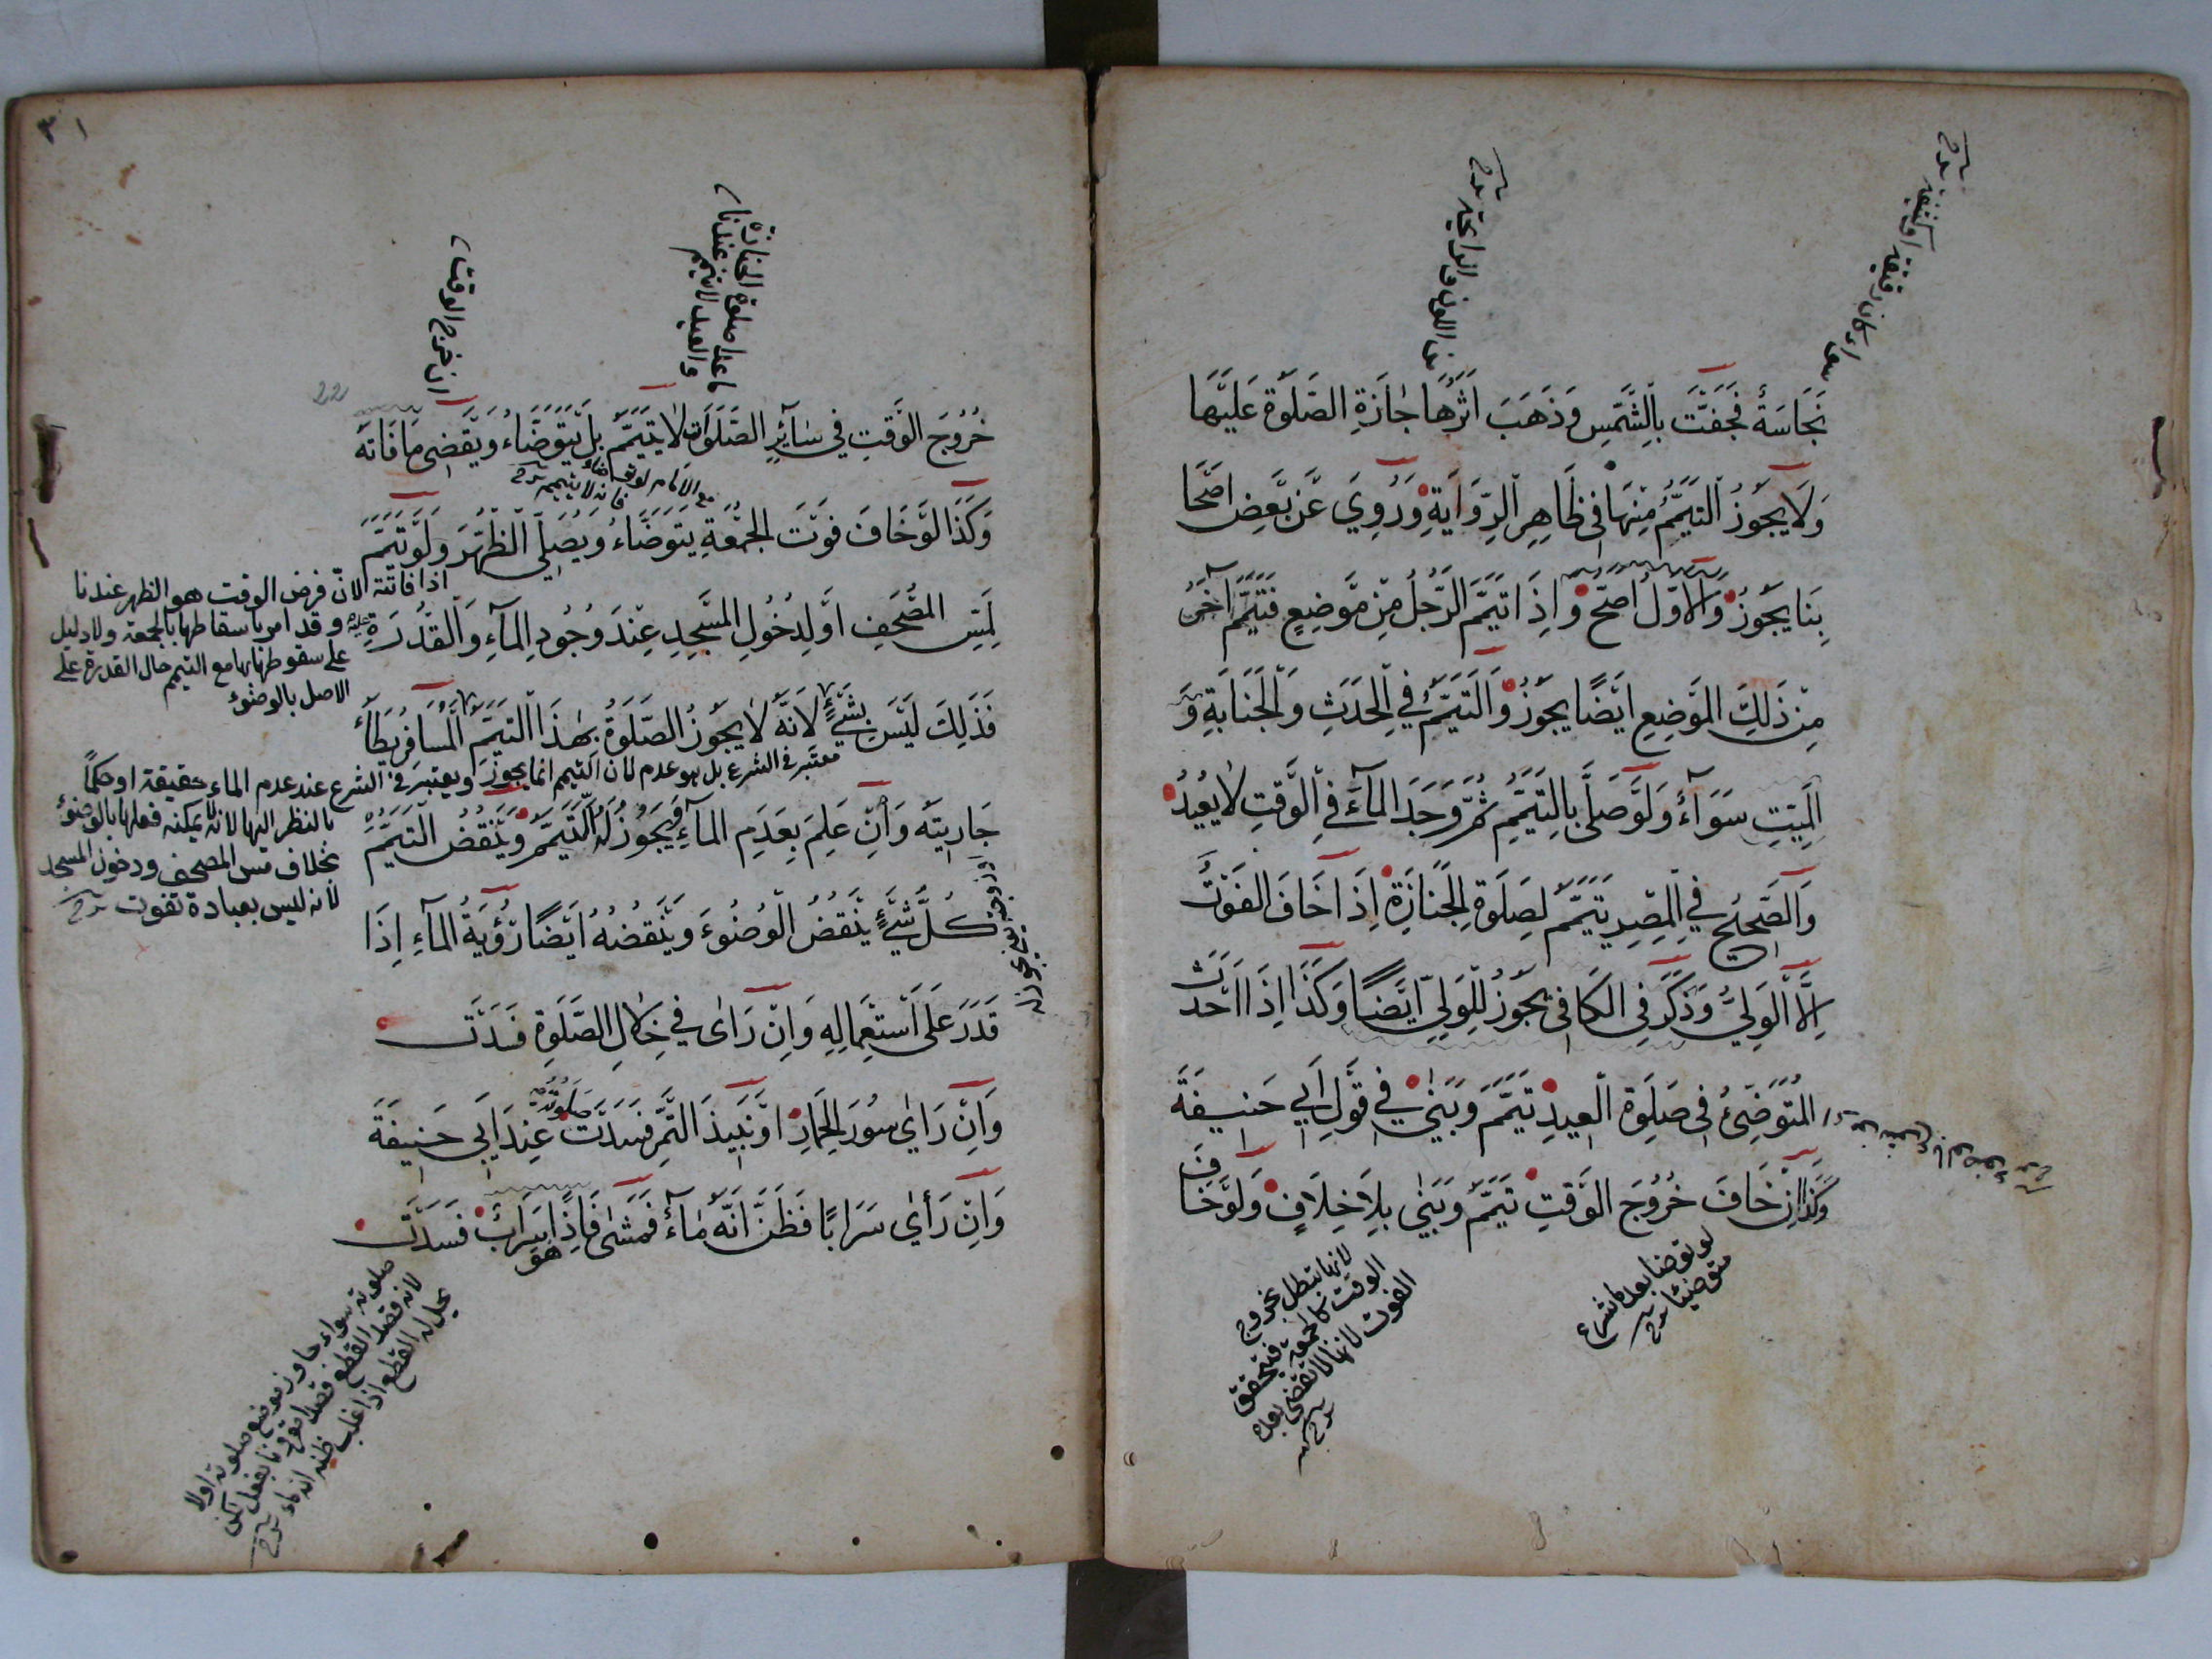 نَجَاسَةٌ فَجَفَّتْ بِالشَّمْسِ وَذَهَبَ اَثَرُهَا جَازَةِ الصَّلٰوةُ عَلَيْهَا
وَلَا يَجُوزُ التَّيَمُّمُ مِنْهَا فِي ظَاهِرِ الرِّوَايَةِ وَرُوِيَ عَنْ بَعْضِ اَصْحَا
بِنَا يَجُوزُ وَالْاَوَّلُ اَصَحُّ وَاِذَا تَيَمَّمَ الرَّجُلُ مِنْ مَوْضِعٍ فَتَيَمَّمَ آخَرُ
مِنْ ذَلِكَ الْمَوْضِعِ اَيْضًا يَجُوزُ وَالتَّيَمُّمُ فِي الْحَدَثِ وَالْجَنَابَةِ وَ
الْمَيِّتِ سَوَآءٌ وَلَوْ صَلَّى بِالتَّيَمُّمِ ثُمَّ وَجَدَ الْمَآءَ فِي الْوَقْتِ لَا يُعِيدُ
وَالصَّحِيْحُ فِي الْمِصْرِ يَتَيَمَّمُ لِصَلٰوةِ الْجَنَازَةِ اِذَا خَافَ الْفَوْتَ
اِلَّا الْوَلِيُّ وَذَكَرَ فِي الْكَافِي يَجُوزُ لِلْوَلِيِّ اَيْضًا وَكَذَا اِذَا اَحْدَثَ
الْمُتَوَضِّئُ فِي صَلٰوةِ الْعِيدِ تَيَمَّمَ وَبَنٰى فِي قَوْلِ اَبِي حَنِيفَةَ
وَكَذَا اِنْ خَافَ خُرُوجَ الْوَقْتِ تَيَمَّمَ وَبَنٰى بِلَا خِلَافٍ وَلَوْ خَافَ
لو توضأ بعد ما شرع
متوضئا
لانها تبطل بخروج
الوقت كالجمعة فيتحقق
الفوت لانها لا تقضى بعده
ان خرج الوقت
ما عدا صلوة الجنازة
والعيد لا يتيمم عندنا
خُرُوجَ الْوَقْتِ فِي سَآئِرِ الصَّلَوَاتِ لَا يَتَيَمَّمُ بَلْ يَتَوَضَّاءُ وَيَقْضِي مَا فَاتَهُ
وَكَذَا لَوْ خَافَ فَوْتَ الْجُمْعَةِ يَتَوَضَّاءُ وَيُصَلِّي الظُّهْرَ وَلَوْ تَيَمَّمَ
لِمَسِّ الْمُصْحَفِ اَوْ لِدُخُولِ الْمَسْجِدِ عِنْدَ وُجُودِ الْمَآءِ وَالْقُدْرَةِ
فَذَلِكَ لَيْسَ بِشَيْءٍ لِاَنَّهُ لَا يَجُوزُ الصَّلٰوةُ بِهٰذَا التَّيَمُّمِ الْمُسَافِرُ يَطَأُ
جَارِيَتَهُ وَاِنْ عَلِمَ بِعَدَمِ الْمَآءِ وَيَجُوزُ لَهُ التَّيَمُّمُ وَيَنْقُضُ التَّيَمُّمَ
كُلُّ شَيْءٍ يَنْقُضُ الْوُضُوءَ وَيَنْقُضُهُ اَيْضًا رُؤْيَةُ الْمَآءِ اِذَا
قَدَرَ عَلَى اسْتِعْمَالِهِ وَاِنْ رَاٰى فِي خِلَالِ الصَّلٰوةِ فَسَدَتْ
وَاِنْ رَاٰي سُورَ الْحِمَارِ اَوْ نَبِيذَ التَّمْرِ فَسَدَتْ صَلٰوتُهُ عِنْدَ اَبِي حَنِيفَةَ
وَاِنْ رَاٰي سَرَابًا فَظَنَّ اَنَّهُ مَآءٌ فَمَشٰى فَاِذَا هُوَ سَرَابٌ فَسَدَتْ
اذا فاتته الان فرض الوقت هو الظهر عندنا
وقد امر باسقاطها بالجمعة ولا دليل
على سقوطها بها مع التيمم حال القدرة على
الاصل بالوضوء
معتبر في الشرع بل هو عدم لان التيمم انما يجوز ويعتبر في الشرع عند عدم الماء حقيقة او حكما
بالنظر اليها لانه يمكنه فعلها بالوضوء
بخلاف مس المصحف ودخول المسجد
لانه ليس بعبادة تفوت
صلوته سواء جاوز موضع صلوته اولا
لانه قصد القطع
22